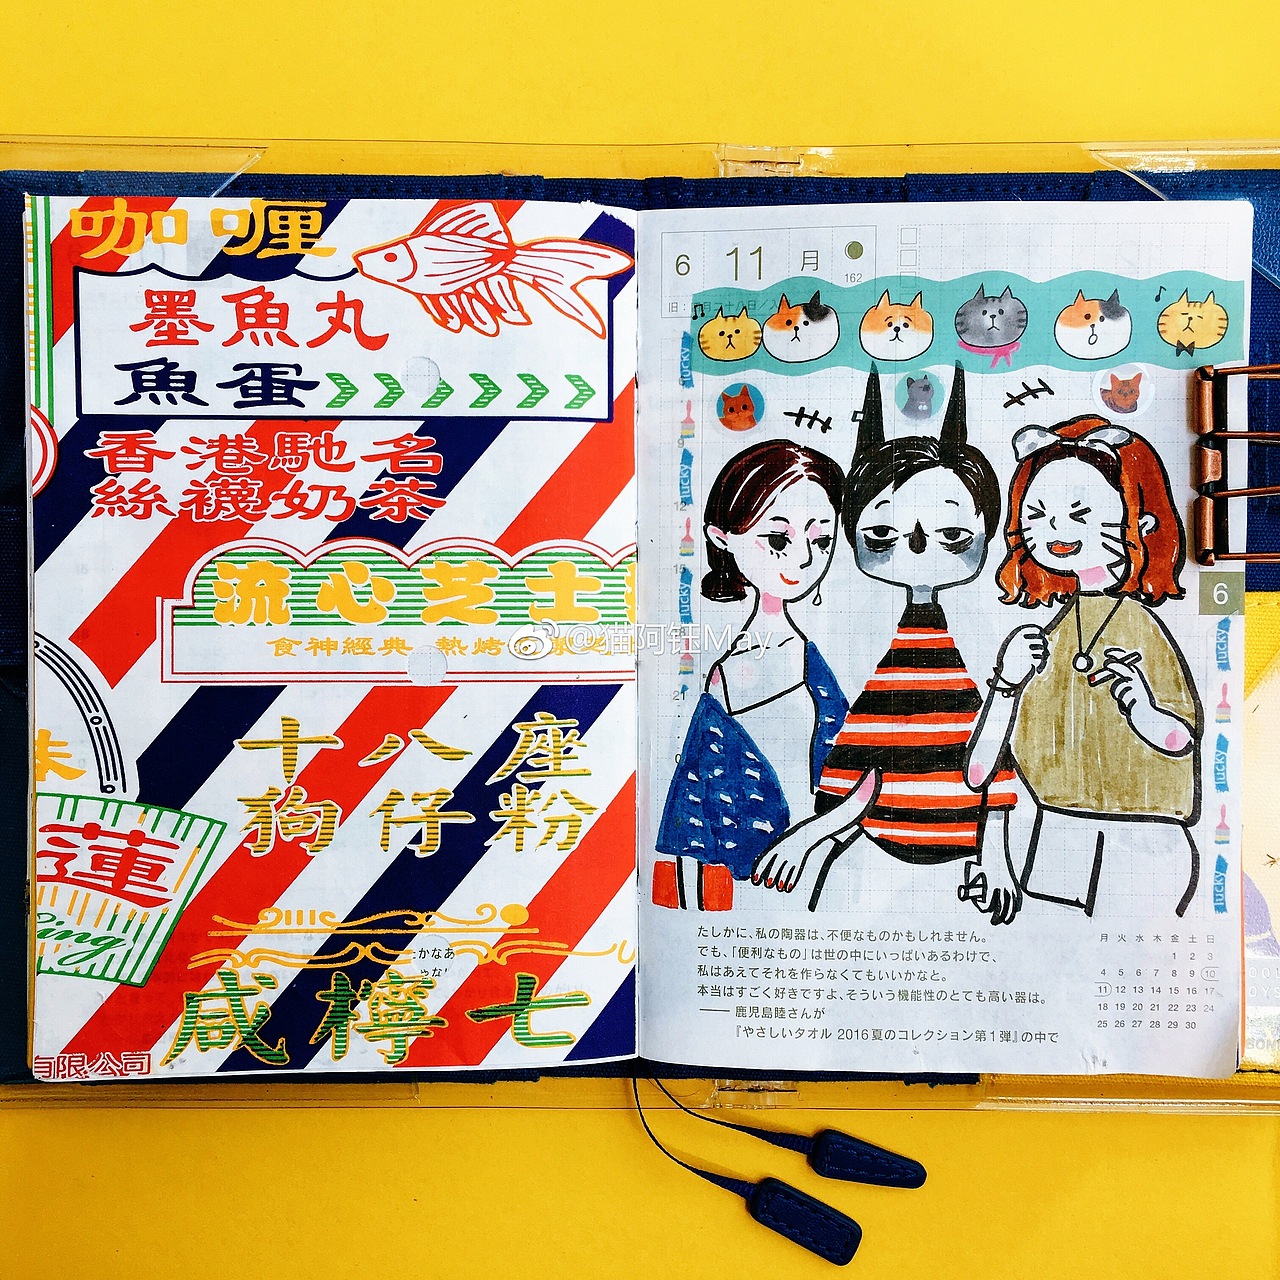 咖喱
墨魚丸
魚蛋
香港馳名
絲襪奶茶
流心芝士
食神經典 熱烤
十八座
狗仔粉
蓮
ing
咸檸七
有限公司
@猫阿钰May
6 11 月
162
lucky
lucky
9
12
15
lucky
21
6
lucky
lucky
lucky
たしかに、私の陶器は、不便なものかもしれません。
でも、「便利なもの」は世の中にいっぱいあるわけで、
私はあえてそれを作らなくてもいいかなと。
本当はすごく好きですよ、そういう機能性のとても高い器は。
── 鹿児島睦さんが
『やさしいタオル 2016夏のコレクション第1弾』の中で
月 火 水 木 金 土 日
1 2 3
4 5 6 7 8 9 10
11 12 13 14 15 16 17
18 19 20 21 22 23 24
25 26 27 28 29 30